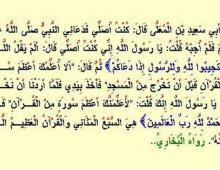 أبي سعيد بن المعلى قال: كُنْتُ أُصَلِّي فَدَعَانِي النَّبِيُّ صَلَّى اللَّهُ عَ
فَلَمْ أُجِبْهُ قُلْتُ: يَا رَسُولَ اللَّهِ إِنِّي كُنْتُ أُصَلِّي قَالَ: أَلَمْ يَقُلِ اللَّ
تَجِيبُوا لِلَّهِ وَلِلرَّسُولِ إِذَا دَعَاكُمْ﴾ ثُمَّ قَالَ: "أَلَا أُعَلِّمُكَ أَعْظَمَ سُ
رْآنِ قَبْلَ أَنْ تَخْرُجَ مِنَ الْمَسْجِدِ" فَأَخَذَ بِيَدِي فَلَمَّا أَرَدْنَا أَنْ نَخْ
ا رَسُولَ اللَّهِ إِنَّكَ قُلْتَ: "لَأُعَلِّمَنَّكَ أَعْظَمَ سُورَةٍ مِنَ الْقُرْآنِ" قَ
حَمْدُ لِلَّهِ رَبِّ الْعَالَمِينَ﴾ هِيَ السَّبْعُ الْمَثَانِي وَالْقُرْآنُ الْعَظِيمُ الَّ
". رَوَاهُ الْبُخَارِيُّ..